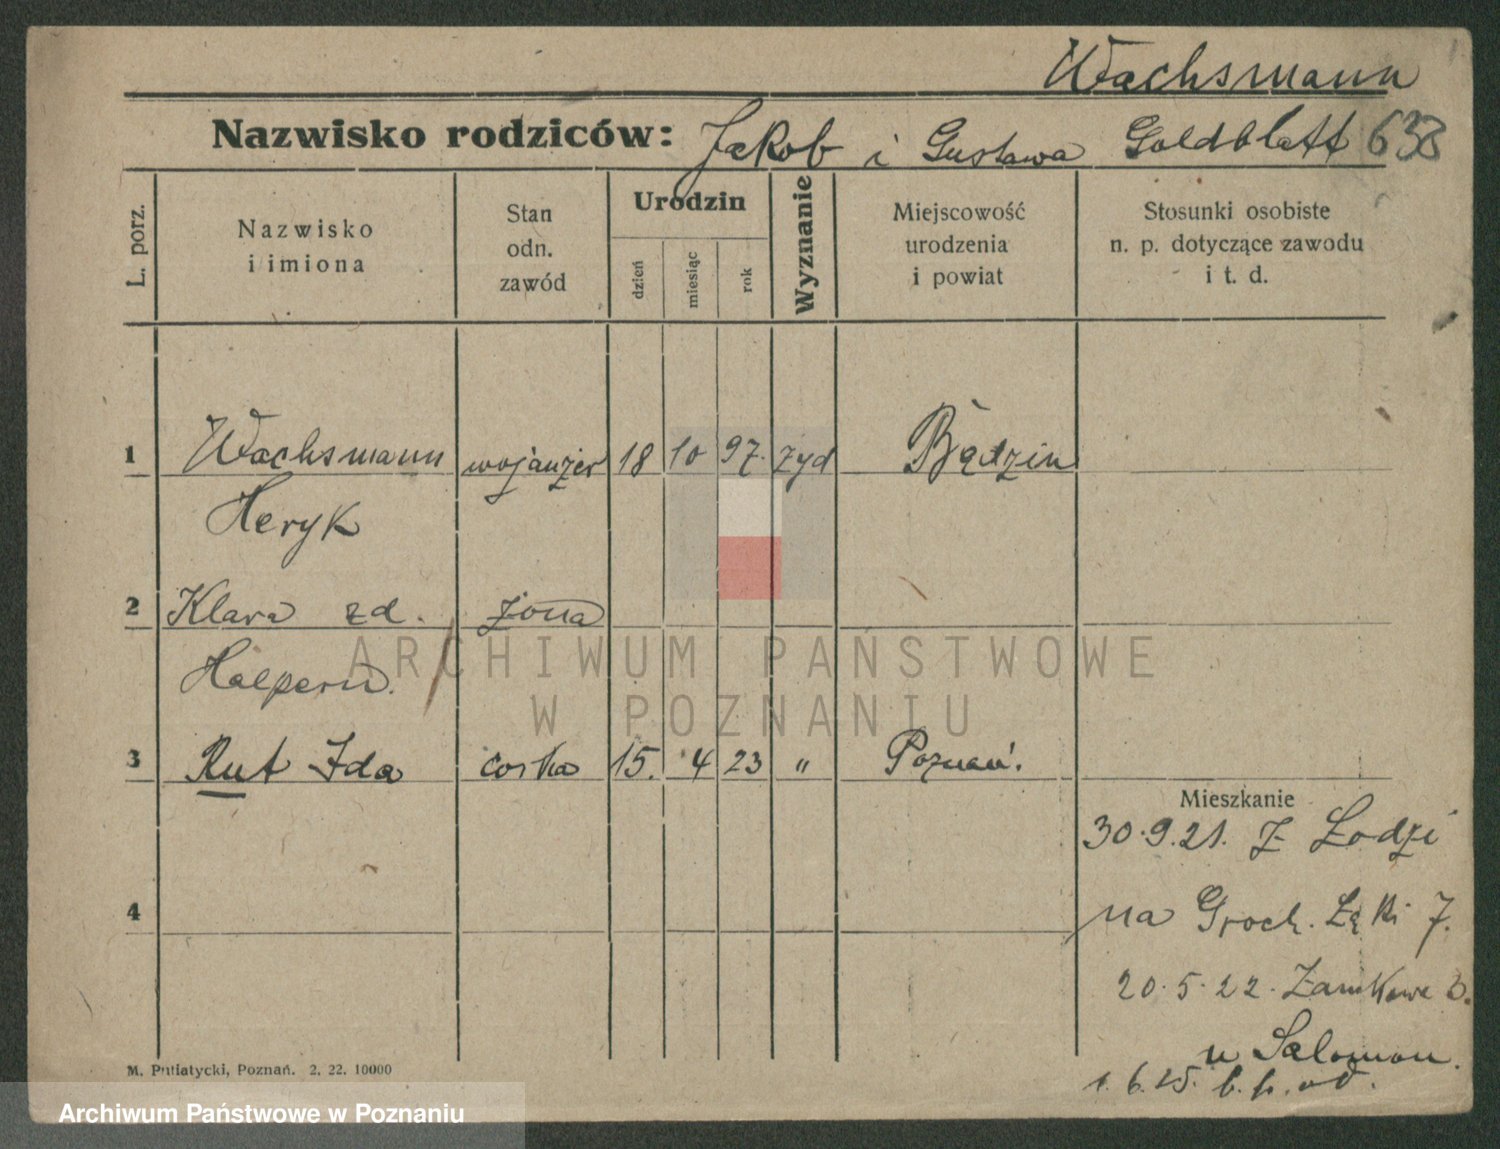 Wachsmann
Nazwisko rodziców: Jakob i Gustawa Goldblatt 638
L. porz.
Nazwisko
i imiona
Stan
odn.
zawód
Urodzin
dzień
miesiąc
rok
Wyznanie
Miejscowość
urodzenia
i powiat
Stosunki osobiste
n. p. dotyczące zawodu
i t. d.
1 Wachsmann wojanżer 18 10 97. żyd Będzin
Heryk
2 Klara zd. żona
Halpern.
3 Rut Ida corka 15. 4 23 " Poznań.
Mieszkanie
30.9.21. Z Łodzi
4
na Groch. Łąki 7.
20.5.22. Zamkowa
u Salomon.
1.6.25. b. p. od.
M. Putiatycki, Poznań. 2. 22. 10000
ARCHIWUM PAŃSTWOWE
W POZNANIU
Archiwum Państwowe w Poznaniu